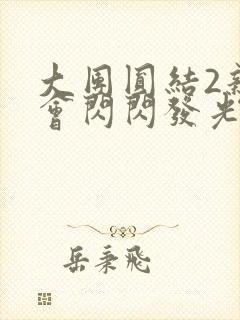 大團圓結2新
會閃閃發光
岳秉飛